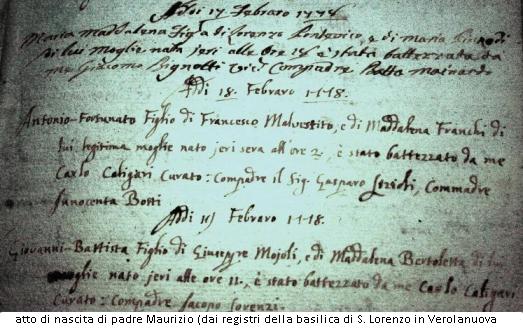 Addi 17 Febraro 1778
Maria Maddalena Figlia di Lorenzo e di Maria
di lui moglie nata jeri alle Ore è stata battezzata da
me Giacomo Bignotti Compadre Batta Mainardi
Addi 18 Febraro 1778.
Antonio-Fortunato Figlio di Francesco Malvestito, e di Maddalena Franchi di
lui legitima moglie nato jeri sera all'ore 2, è stato battezzato da me
Carlo Caligari Curato: Compadre il Sig. Gasparo Commadre
Innocenta Bosti
Addi 19 Febraro 1778.
Giovanni-Battista Figlio di Giuseppe Mojoli, e di Maddalena Bertoletta di lui
moglie nato jeri alle ore 11, è stato battezzato da me Carlo Caligari
Curato: Compadre Jacopo Lorenzi.
atto di nascita di padre Maurizio (dai registri della basilica di S. Lorenzo in Verolanuova